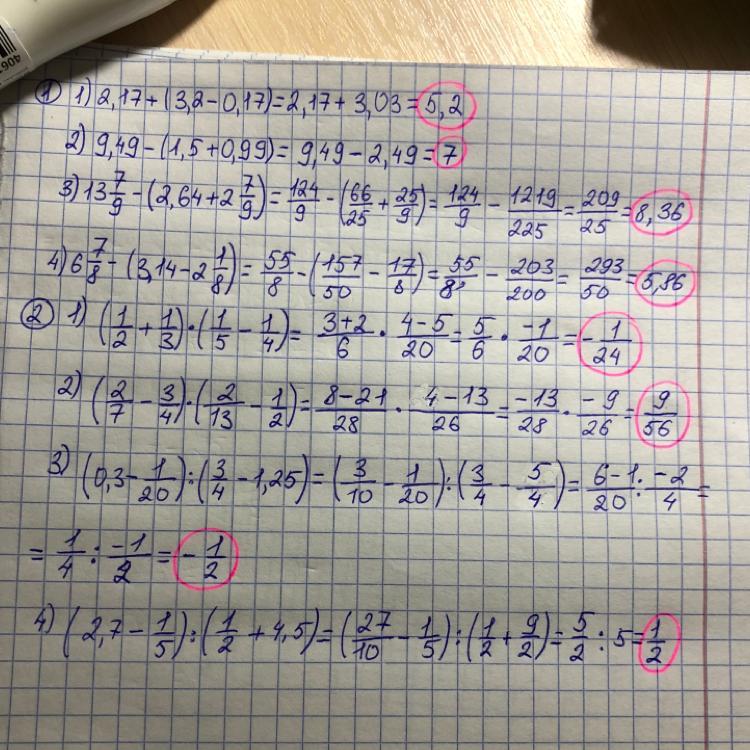 ① 1) 2,17+(3,2-0,17)=2,17+3,03=5,2
2) 9,49-(1,5+0,99)=9,49-2,49=7
3) 13 7/9-(2,64+2 7/9)=124/9-(66/25+25/9)=124/9-1219/225=209/25=8,36
4) 6 7/8-(3,14-2 1/8)=55/8-(157/50-17/8)=55/8-203/200=293/50=5,86
② 1) (1/2+1/3)·(1/5-1/4)=3+2/6·4-5/20=5/6·-1/20=-1/24
2) (2/7-3/4)·(2/13-1/2)=8-21/28·4-13/26=-13/28·-9/26=9/56
3) (0,3-1/20):(3/4-1,25)=(3/10-1/20):(3/4-5/4)=6-1/20:-2/4=
=1/4:-1/2=-1/2
4) (2,7-1/5):(1/2+4,5)=(27/10-1/5):(1/2+9/2)=5/2:5=1/2